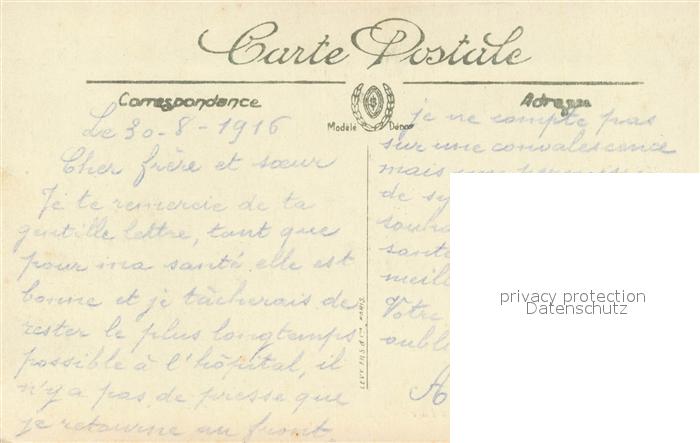 Carte Postale
Correspondance
Adresse
Modèle Déposé
Le 30-8-1916
Cher frère et sœur
Je te remercie de ta
gentille lettre, tant que
pour ma santé elle est
bonne et je tâcherais de
rester le plus longtemps
possible à l'hôpital, il
n'y a pas de presse que
je retourne au front.
je ne compte pas
sur une convalescence
mais
de
santé
meill
Votre
oubl
LEVY FILS & Cie PARIS
privacy protection
Datenschutz